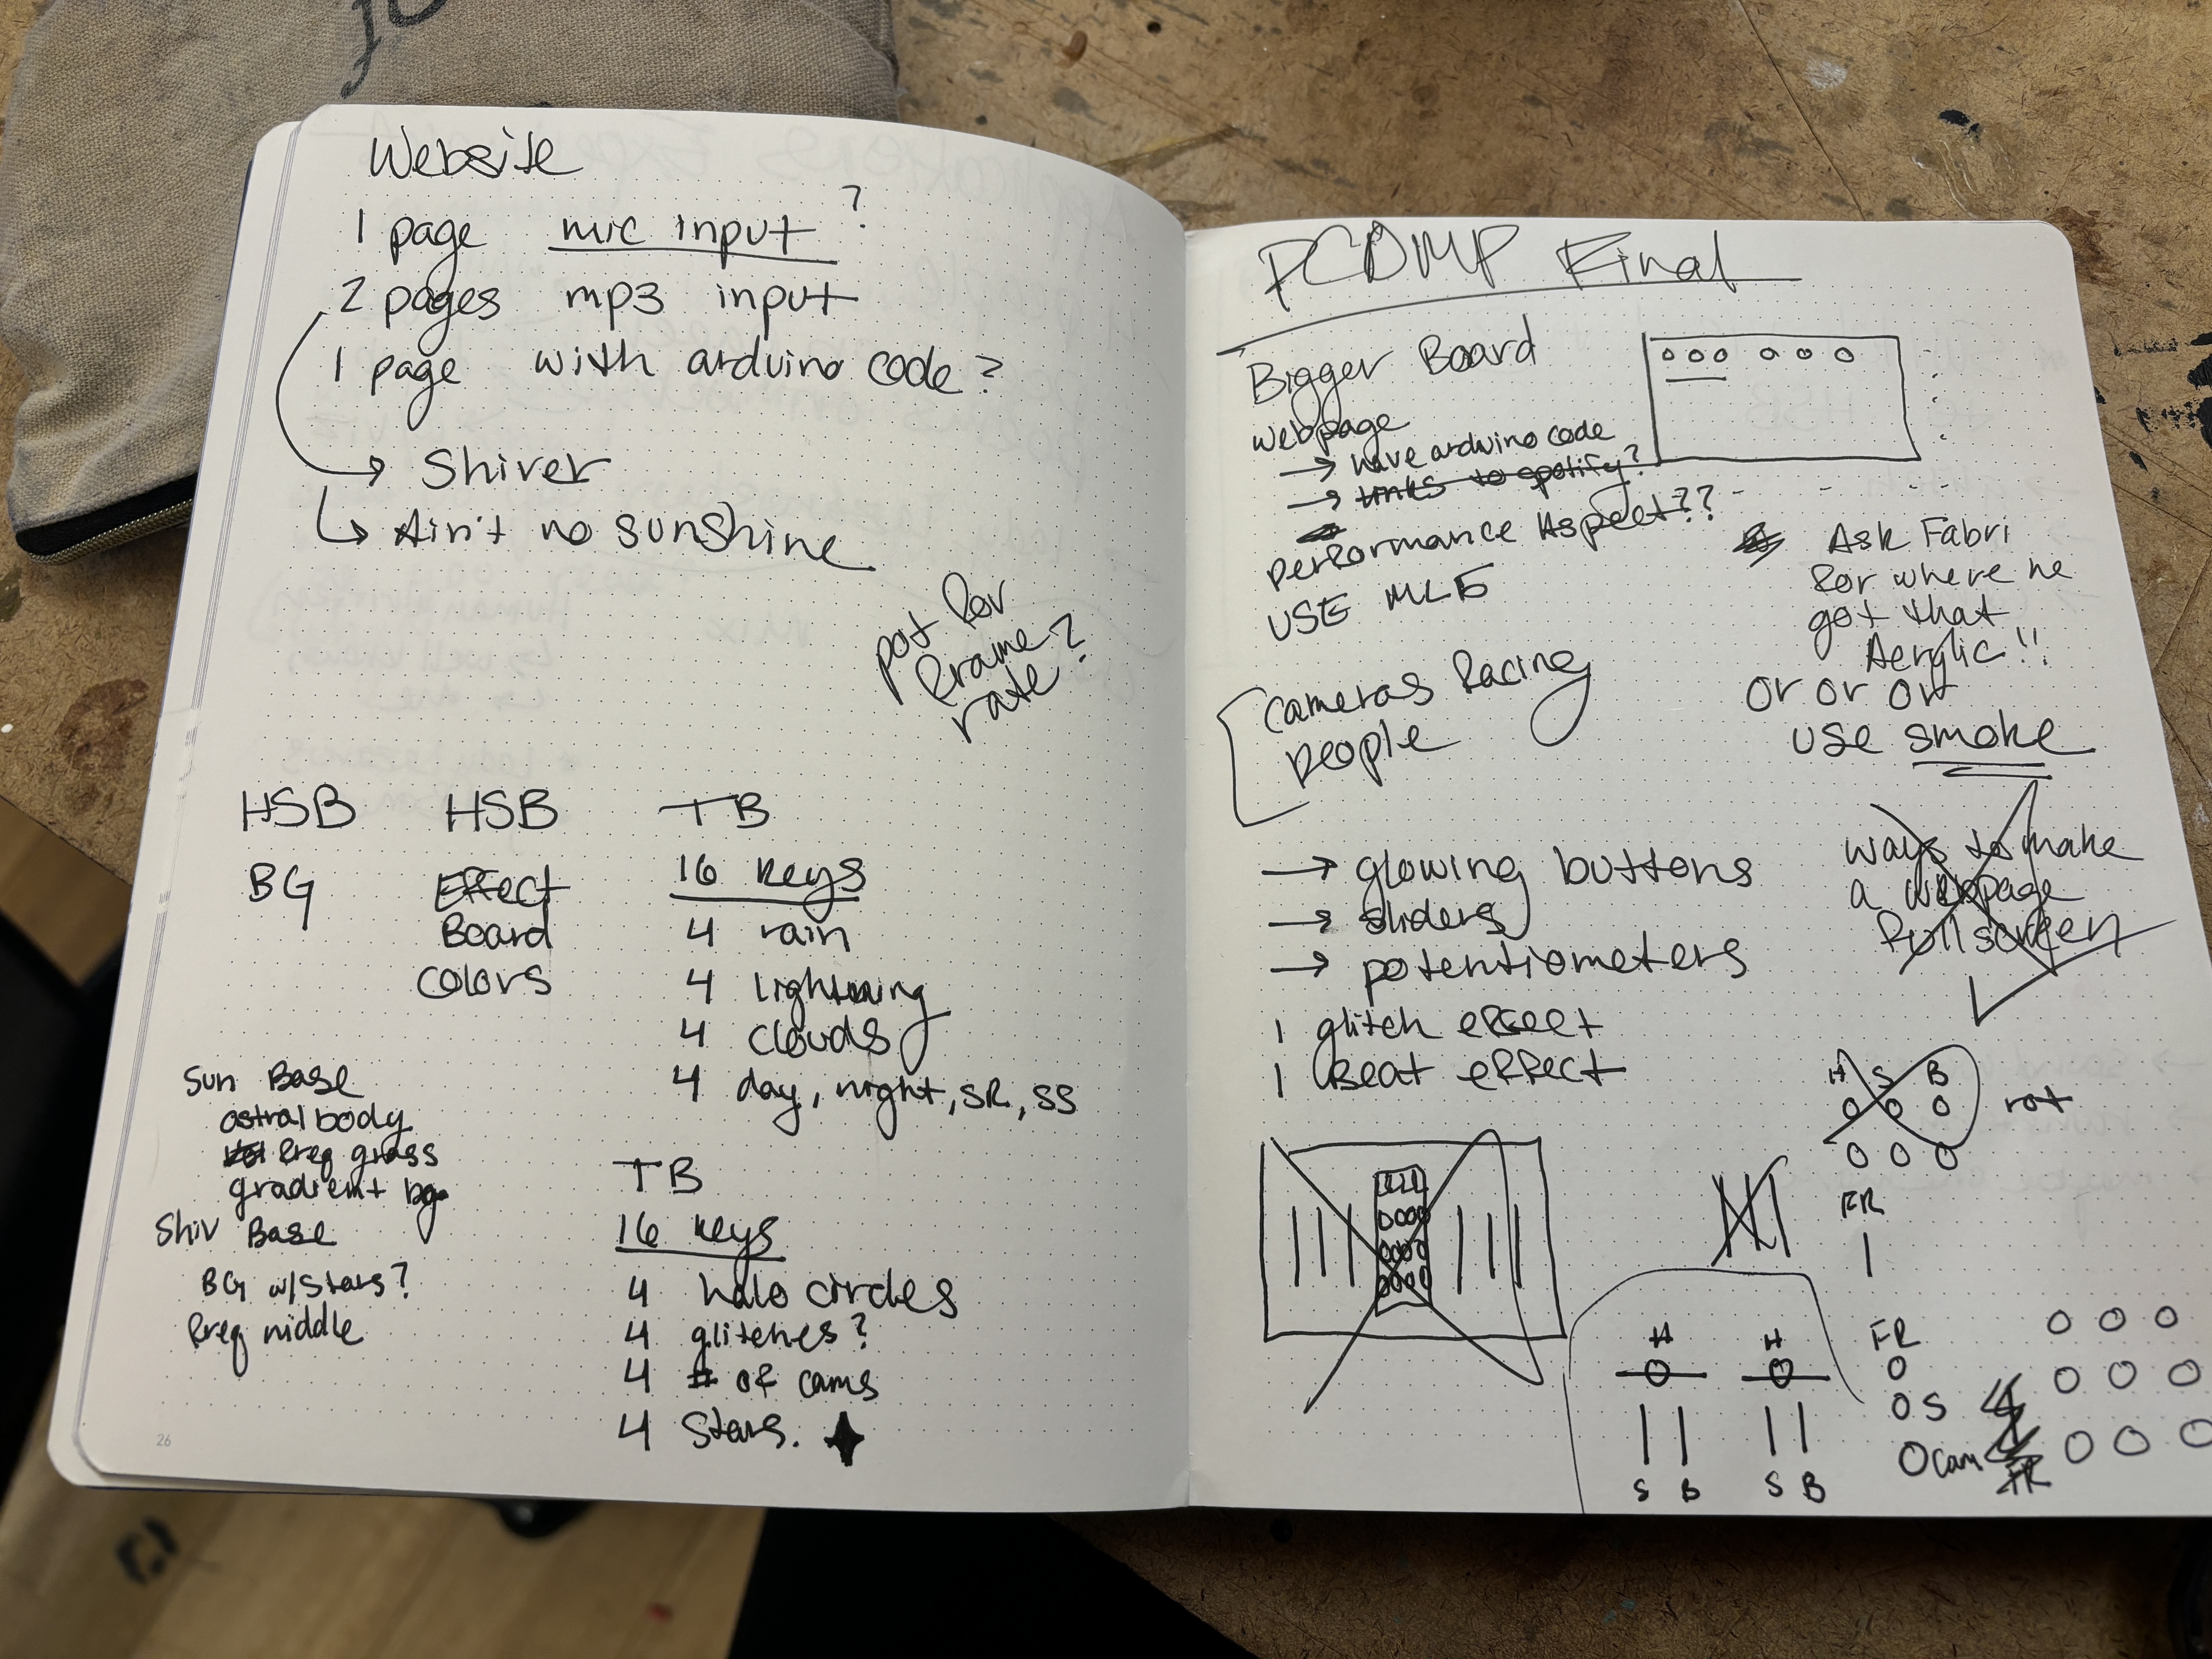 Website
1 page mic input ?
2 pages mp3 input
1 page with arduino code?
→ Shiver
↳ Ain't no sunshine
pot for
frame
rate?
HSB HSB TB
BG Effect 16 keys
Board 4 rain
Colors 4 lightning
4 clouds
4 day, night, SR, SS
Sun Base
astral body
freq grass
gradient bg
Shiv Base
BG w/stars?
freq middle
TB
16 keys
4 halo circles
4 glitches?
4 # of cams
4 stars.
26
PCDMP Final
Bigger Board
webpage
→ have arduino code
→ links to spotify?
performance Aspect??
USE ML5
Ask Fabri
for where he
got that
Acrylic!!
or or or
use smoke
cameras facing
people
→ glowing buttons
→ sliders
→ potentiometers
1 glitch effect
1 Beat effect
ways to make
a webpage
fullscreen
H S B
rot
FR
H H
S B S B
FR
S
cam
FR